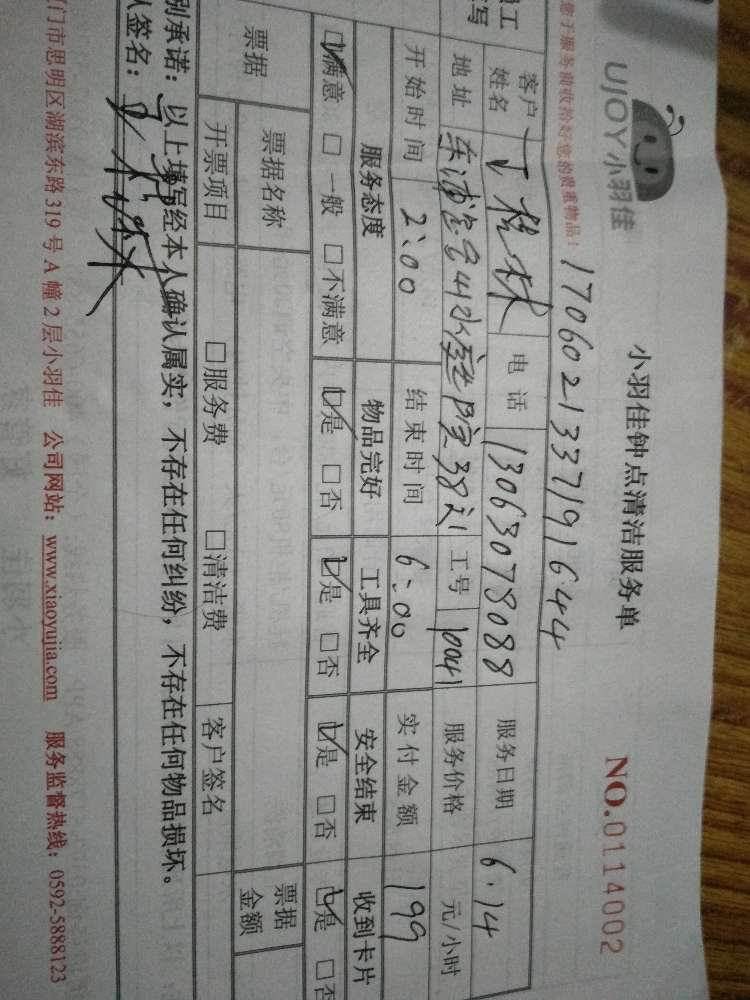 UJOY 小羽佳
小羽佳钟点清洁服务单
NO.0114002
您于服务前收拾好您的贵重物品!
1706021337191644
客户姓名 丁 林 电话 13063078088 服务日期 6.14
地址 38 工号 10041 服务价格 元/小时
开始时间 2:00 结束时间 6:00 实付金额 199
服务态度 物品完好 工具齐全 安全结束 收到卡片
☑满意 □一般 □不满意 ☑是 □否 ☑是 □否 ☑是 □否 ☑是 □否
票据 票据名称 票据金额
开票项目 □服务费 □清洁费 客户签名
别承诺:以上填写经本人确认属实,不存在任何纠纷,不存在任何物品损坏。
签名:
门市思明区湖滨东路 319 号 A 幢 2 层小羽佳 公司网站:www.xiaoyujia.com 服务监督热线:0592-5888123